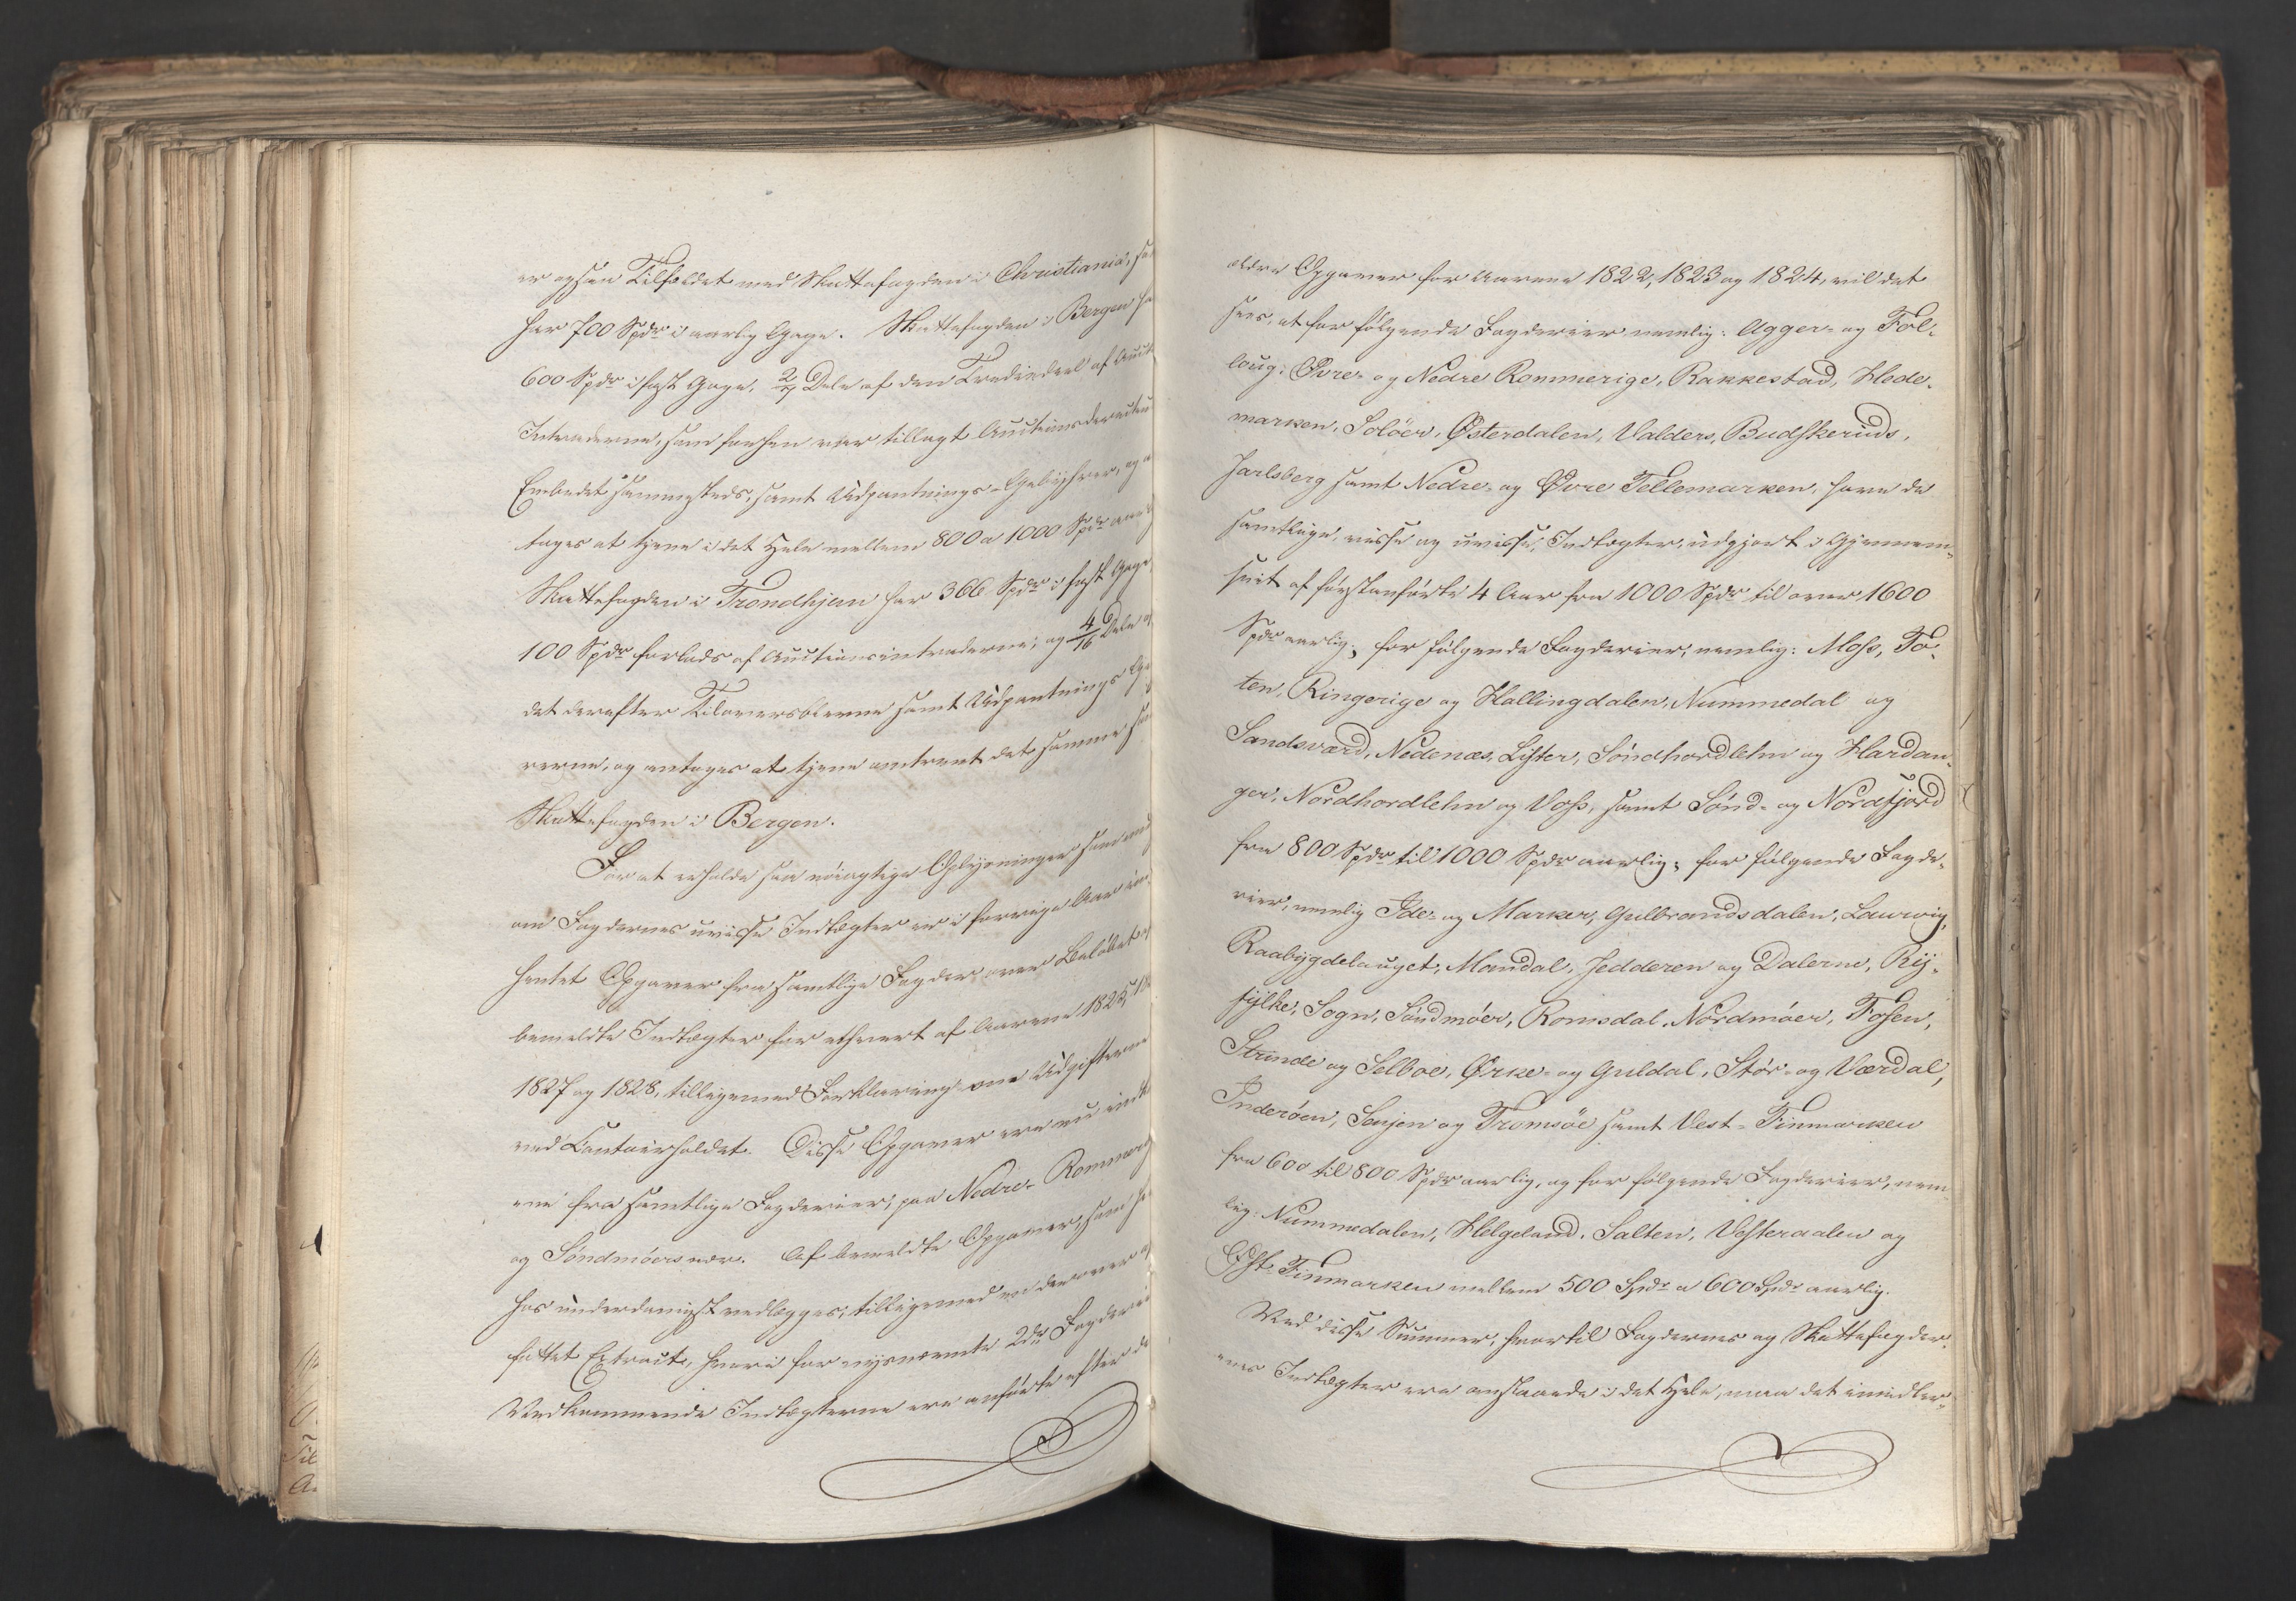 er ogsaa Tilfældet med Skattefogden i Christiania, som
har 700 Spdr i aarlig Gage. Skattefogden i Bergen ha
600 Spdr i fast Gage, Dele af den Trediedeel af Auct
Intraderne, som forhen var tillagt Auctionsdirecteur
Embedet sammesteds, samt Udpantnings-Gebyhrer, og a
tages at tjene i det Hele mellem 800 a 1000 Spdr aarl
Skattefogden i Trondhjem har 366 Spdr i fast Gage,
100 Spdr forlods af Auctionsintraderne, og 4/16 Dele a
det derefter Tiloversblevne samt Udpantnings Ge
rerne, og antages at tjene omtrent det samme som
Skattefogden i Bergen.
For at erholde saa nöiagtige Oplysninger som mul
om Fogdernes uvisse Indtægter er i forrige Aar ind-
hentet Opgaver fra samtlige Fogder over Belöbet a
bemeldte Indtægter for ethvert af Aarene 1825, 18
1827 og 1828, tilligemed Forklaring om Udgifterne
ved Contoirholdet. Disse Opgaver ere nu indk
ne fra samtlige Fogderier, paa Nedre-Rommerig
og Söndmöers nær. Af bemeldte Opgaver, som h
hos underdanigst vedlægges, tilligemed en derover a
fattet Extract, hvori for nysnævnte 2de Fogderi
Vedkommende Indtægterne ere anförte efter de
ældre Opgaver for Aarene 1822, 1823 og 1824, vil det
sees, at for fölgende Fogderier nemlig: Agger- og Fol-
loug, Övre- og Nedre Rommerige, Rakkestad, Hede-
marken, Solöer, Österdalen, Valders, Budskeruds,
Jarlsberg samt Nedre- og Övre Tellemarken, have de
samtlige, visse og uvisse, Indtægter, udgjort i Gjennem-
snit af förstanförte 4 Aar fra 1000 Spdr til over 1600
Spdr aarlig; for fölgende Fogderier, nemlig: Moss, To-
ten, Ringerige og Hallingdalen, Nummedal og
Sandsværd, Nedenæs, Lister, Söndhordlehn og Hardan-
ger, Nordhordlehn og Voss, samt Sönd- og Nordfjord
fra 800 Spdr til 1000 Spdr aarlig; for fölgende Fogde-
rier, nemlig Ide- og Marker, Gulbrandsdalen, Laurvig,
Raabygdelauget, Mandal, Jedderen og Dalerne, Ry-
fylke, Sogn, Söndmöer, Romsdal, Nordmöer, Fosen,
Strinde og Selboe, Örke- og Guldal, Stör- og Værdal,
Inderöen, Senjen og Tromsöe samt Vest-Finmarken
fra 600 til 800 Spdr aarlig, og for fölgende Fogderier, nem-
lig: Nummedalen, Helgeland, Salten, Vesteraalen og
Öst-Finmarken mellem 500 Spdr a 600 Spdr aarlig.
Ved disse Summer, hvortil Fogdernes og Skattefogder-
nes Indtægter ere anslaaede i det Hele, maa det imidler-